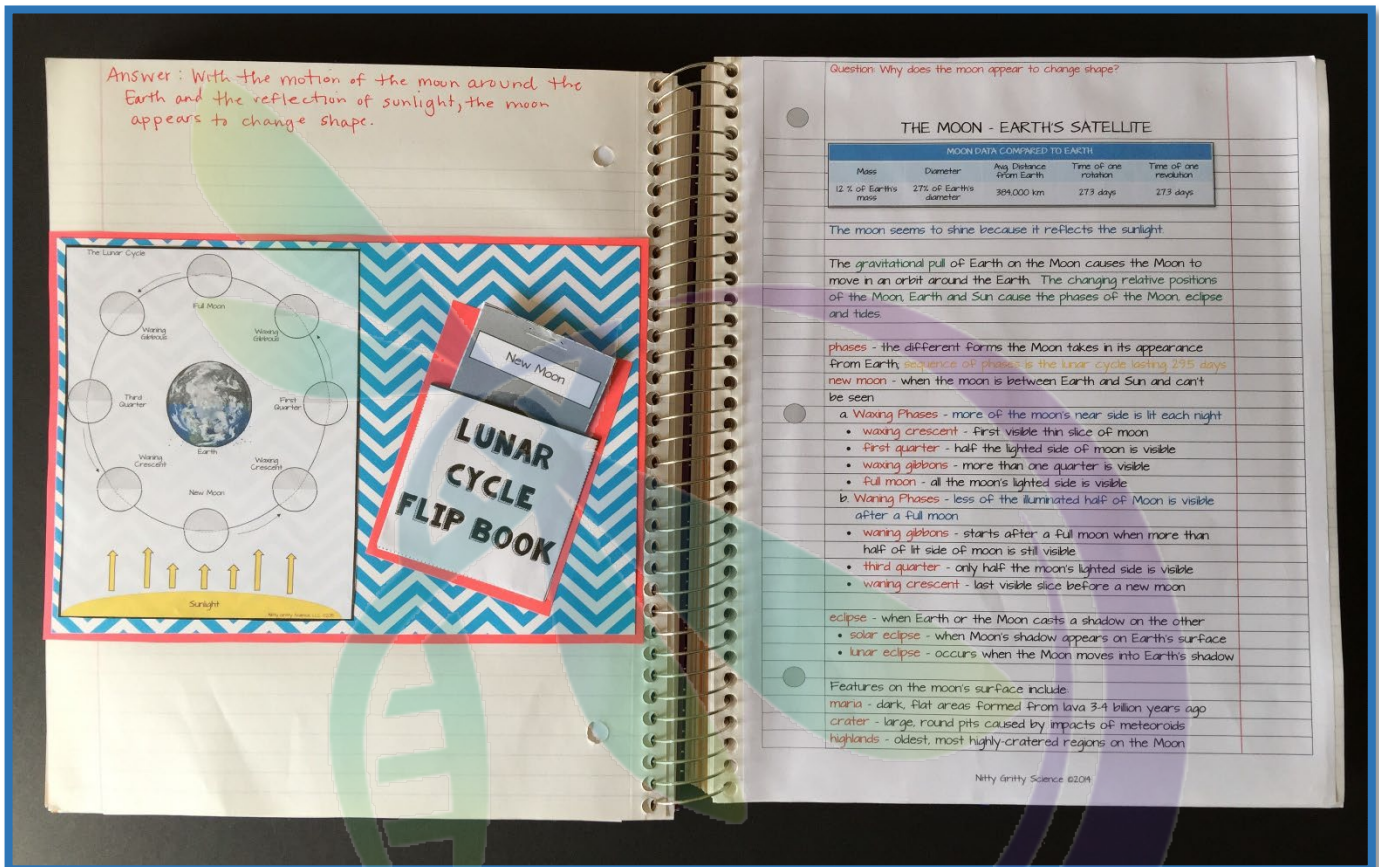 Answer: With the motion of the moon around the
Earth and the reflection of sunlight, the moon
appears to change shape.
The Lunar Cycle
Full Moon
Waning
Gibbous
Waxing
Gibbous
Third
Quarter
First
Quarter
Earth
Waning
Crescent
Waxing
Crescent
New Moon
Sunlight
Nitty Gritty Science, LLC ©2014
New Moon
LUNAR
CYCLE
FLIP BOOK
Question: Why does the moon appear to change shape?
THE MOON - EARTH'S SATELLITE
MOON DATA COMPARED TO EARTH
Mass Diameter Avg. Distance from Earth Time of one rotation Time of one revolution
12 % of Earth's mass 27% of Earth's diameter 384,000 km 27.3 days 27.3 days
The moon seems to shine because it reflects the sunlight.
The gravitational pull of Earth on the Moon causes the Moon to
move in an orbit around the Earth. The changing relative positions
of the Moon, Earth and Sun cause the phases of the Moon, eclipse
and tides.
phases - the different forms the Moon takes in its appearance
from Earth; sequence of phases is the lunar cycle lasting 29.5 days
new moon - when the moon is between Earth and Sun and can't
be seen
a. Waxing Phases - more of the moon's near side is lit each night
• waxing crescent - first visible thin slice of moon
• first quarter - half the lighted side of moon is visible
• waxing gibbons - more than one quarter is visible
• full moon - all the moon's lighted side is visible
b. Waning Phases - less of the illuminated half of Moon is visible
after a full moon
• waning gibbons - starts after a full moon when more than
half of lit side of moon is still visible
• third quarter - only half the moon's lighted side is visible
• waning crescent - last visible slice before a new moon
eclipse - when Earth or the Moon casts a shadow on the other
• solar eclipse - when Moon's shadow appears on Earth's surface
• lunar eclipse - occurs when the Moon moves into Earth's shadow
Features on the moon's surface include:
maria - dark, flat areas formed from lava 3-4 billion years ago
crater - large, round pits caused by impacts of meteoroids
highlands - oldest, most highly-cratered regions on the Moon
Nitty Gritty Science ©2014